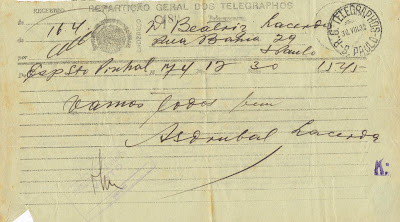 RECEBIDO
REPARTIÇÃO GERAL DOS TELEGRAPHOS
164
D. Beatriz Lacerda
Rua Bahia 29
S Paulo
R.G. TELEGRAPHOS
S. PAULO
Esp Sto Pinhal 74 12 30 1545
Vamos todos bem
Asdrubal Lacerda
K: